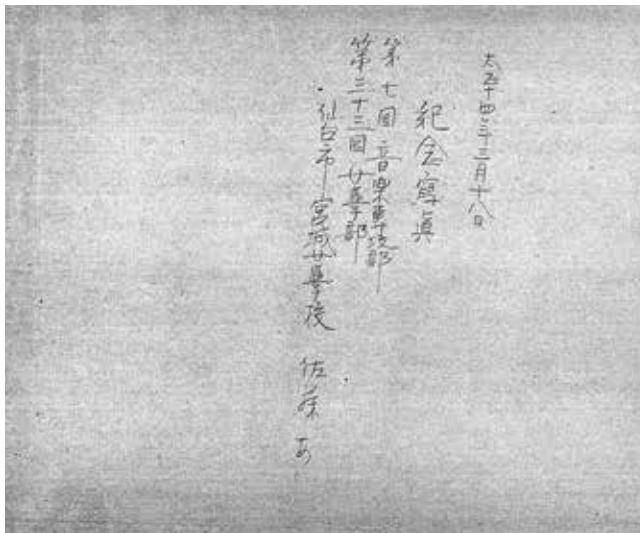 大正十四年三月十八日
紀念寫眞
第七回音楽専攻部
第三十三回女学部
仙台市宮城女學校 佐藤 あ